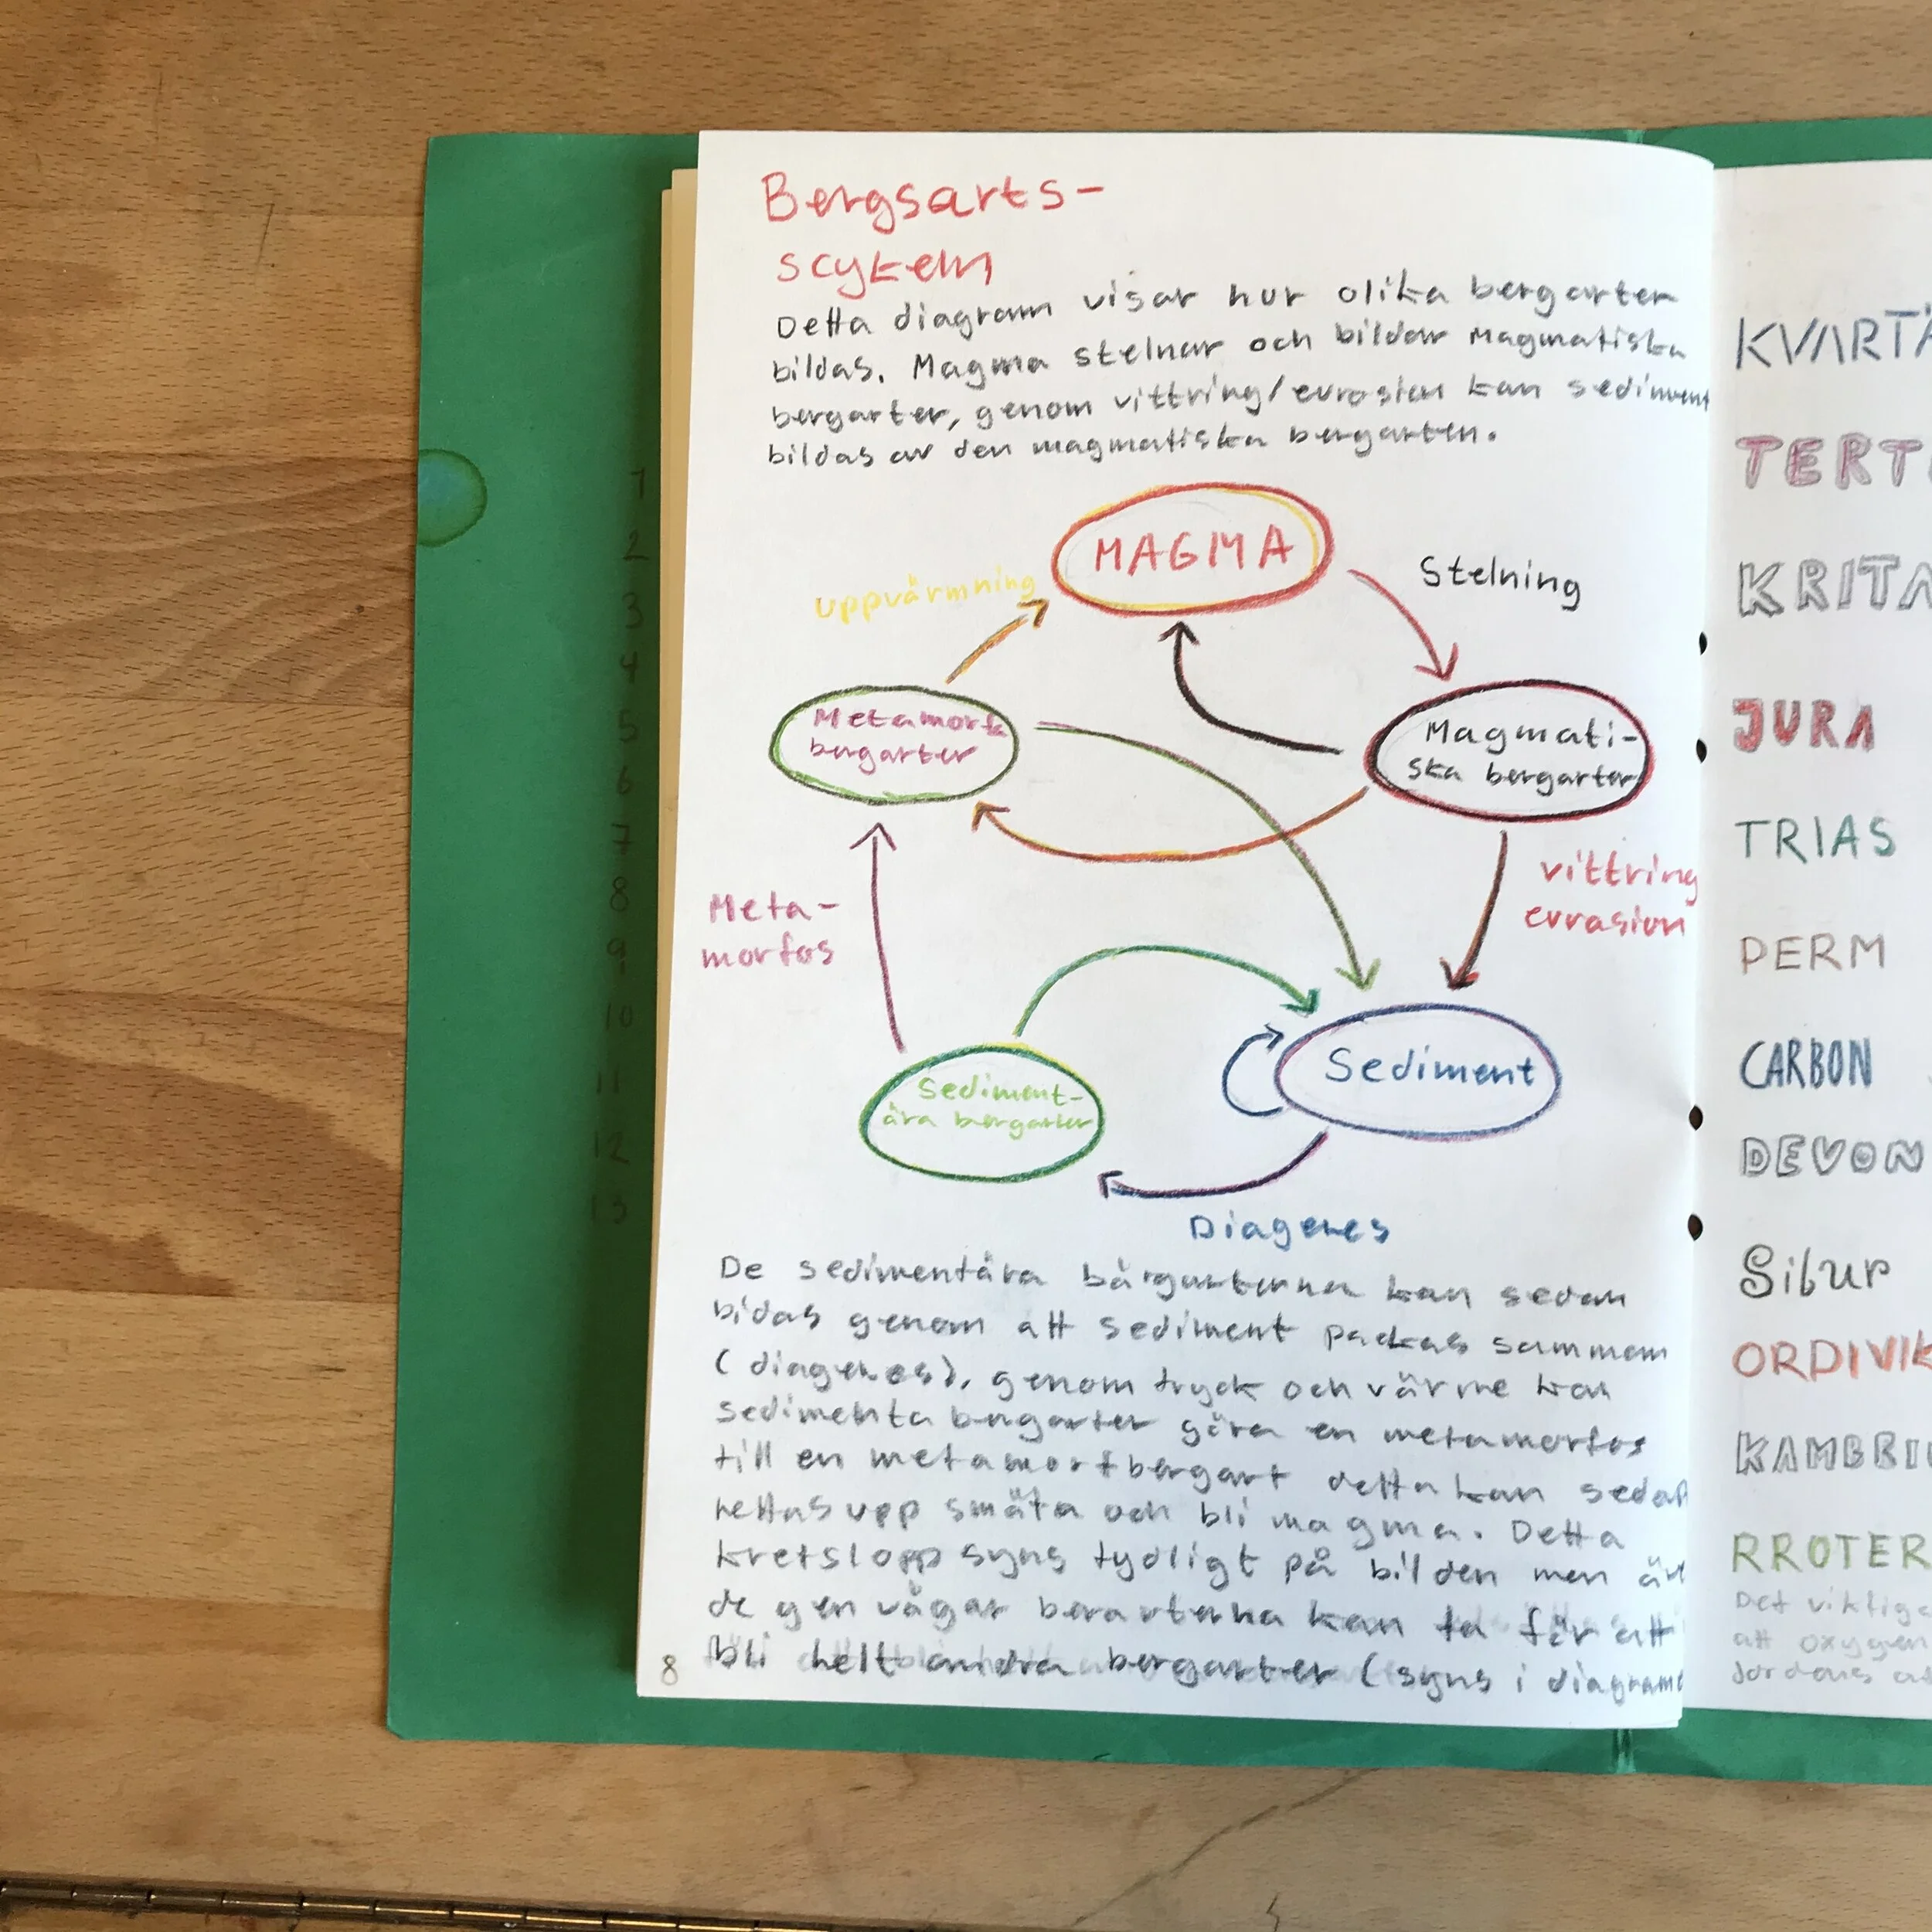 Bergsarts-
scykeln
Detta diagram visar hur olika bergarter
bildas. Magma stelnar och bildar Magmatiska
bergarter, genom vittring/eurosion kan sediment
bildas av den magmatiska bergarten.
MAGMA
uppvärmning
Stelning
Metamorfa
bergarter
Magmati-
ska bergarter
vittring
eurasion
Meta-
morfos
Sediment-
ära bergarter
Sediment
Diagenes
De sedimentära bärgarterna kan sedan
bidas genom att sediment packas samman
(diagenes), genom tryck och värme kan
sedimenta bergarter göra en metamorfos
till en metamorfbergart detta kan sedan
hettas upp smäta och bli magma. Detta
kretslopp syns tydligt på bilden men är
de gen vägar berarterna kan ta för att
bli helt andra bergarter (syns i diagrame
8
1
2
3
4
5
6
7
8
9
10
11
12
13
KVARTÄ
TERTI
KRITA
JURA
TRIAS
PERM
CARBON
DEVON
Silur
ORDIVIK
KAMBRIU
RROTER
Det viktiga
att oxygen
Jordens